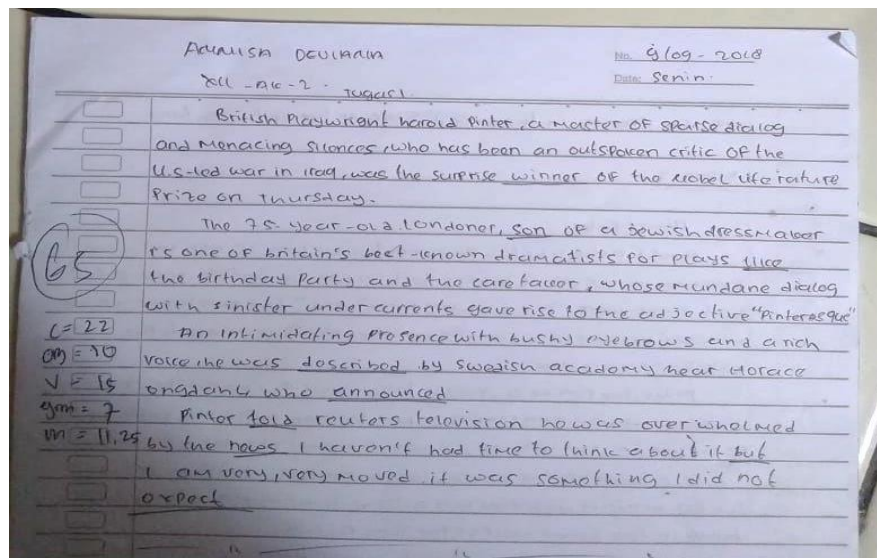 No. 9/09-2018
XII - AK - 2. Tugas 1.
Date: Senin.
British Playwright harold Pinter, a master of sparse dialog
and Menacing silences, who has been an outspoken critic of the
U.S-led war in iraq, was the surprise winner of the nobel literature
Prize on Thursday.
The 75-year-old londoner, son of a jewish dressmaker
is one of britain's best-known dramatists for plays like
65
the birthday Party and the caretaker, whose mundane dialog
with sinister undercurrents gave rise to the adjective "Pinteresque"
C = 22
An intimidating presence with bushy eyebrows and a rich
om = 10
voice, he was described by swedish academy hear Horace
V = 15
engdahl, who announced
gm = 7
Pinter told reuters television he was overwhelmed
m = 11,25
by the news I haven't had time to think about it but
I am very, very moved it was something I did not
expect